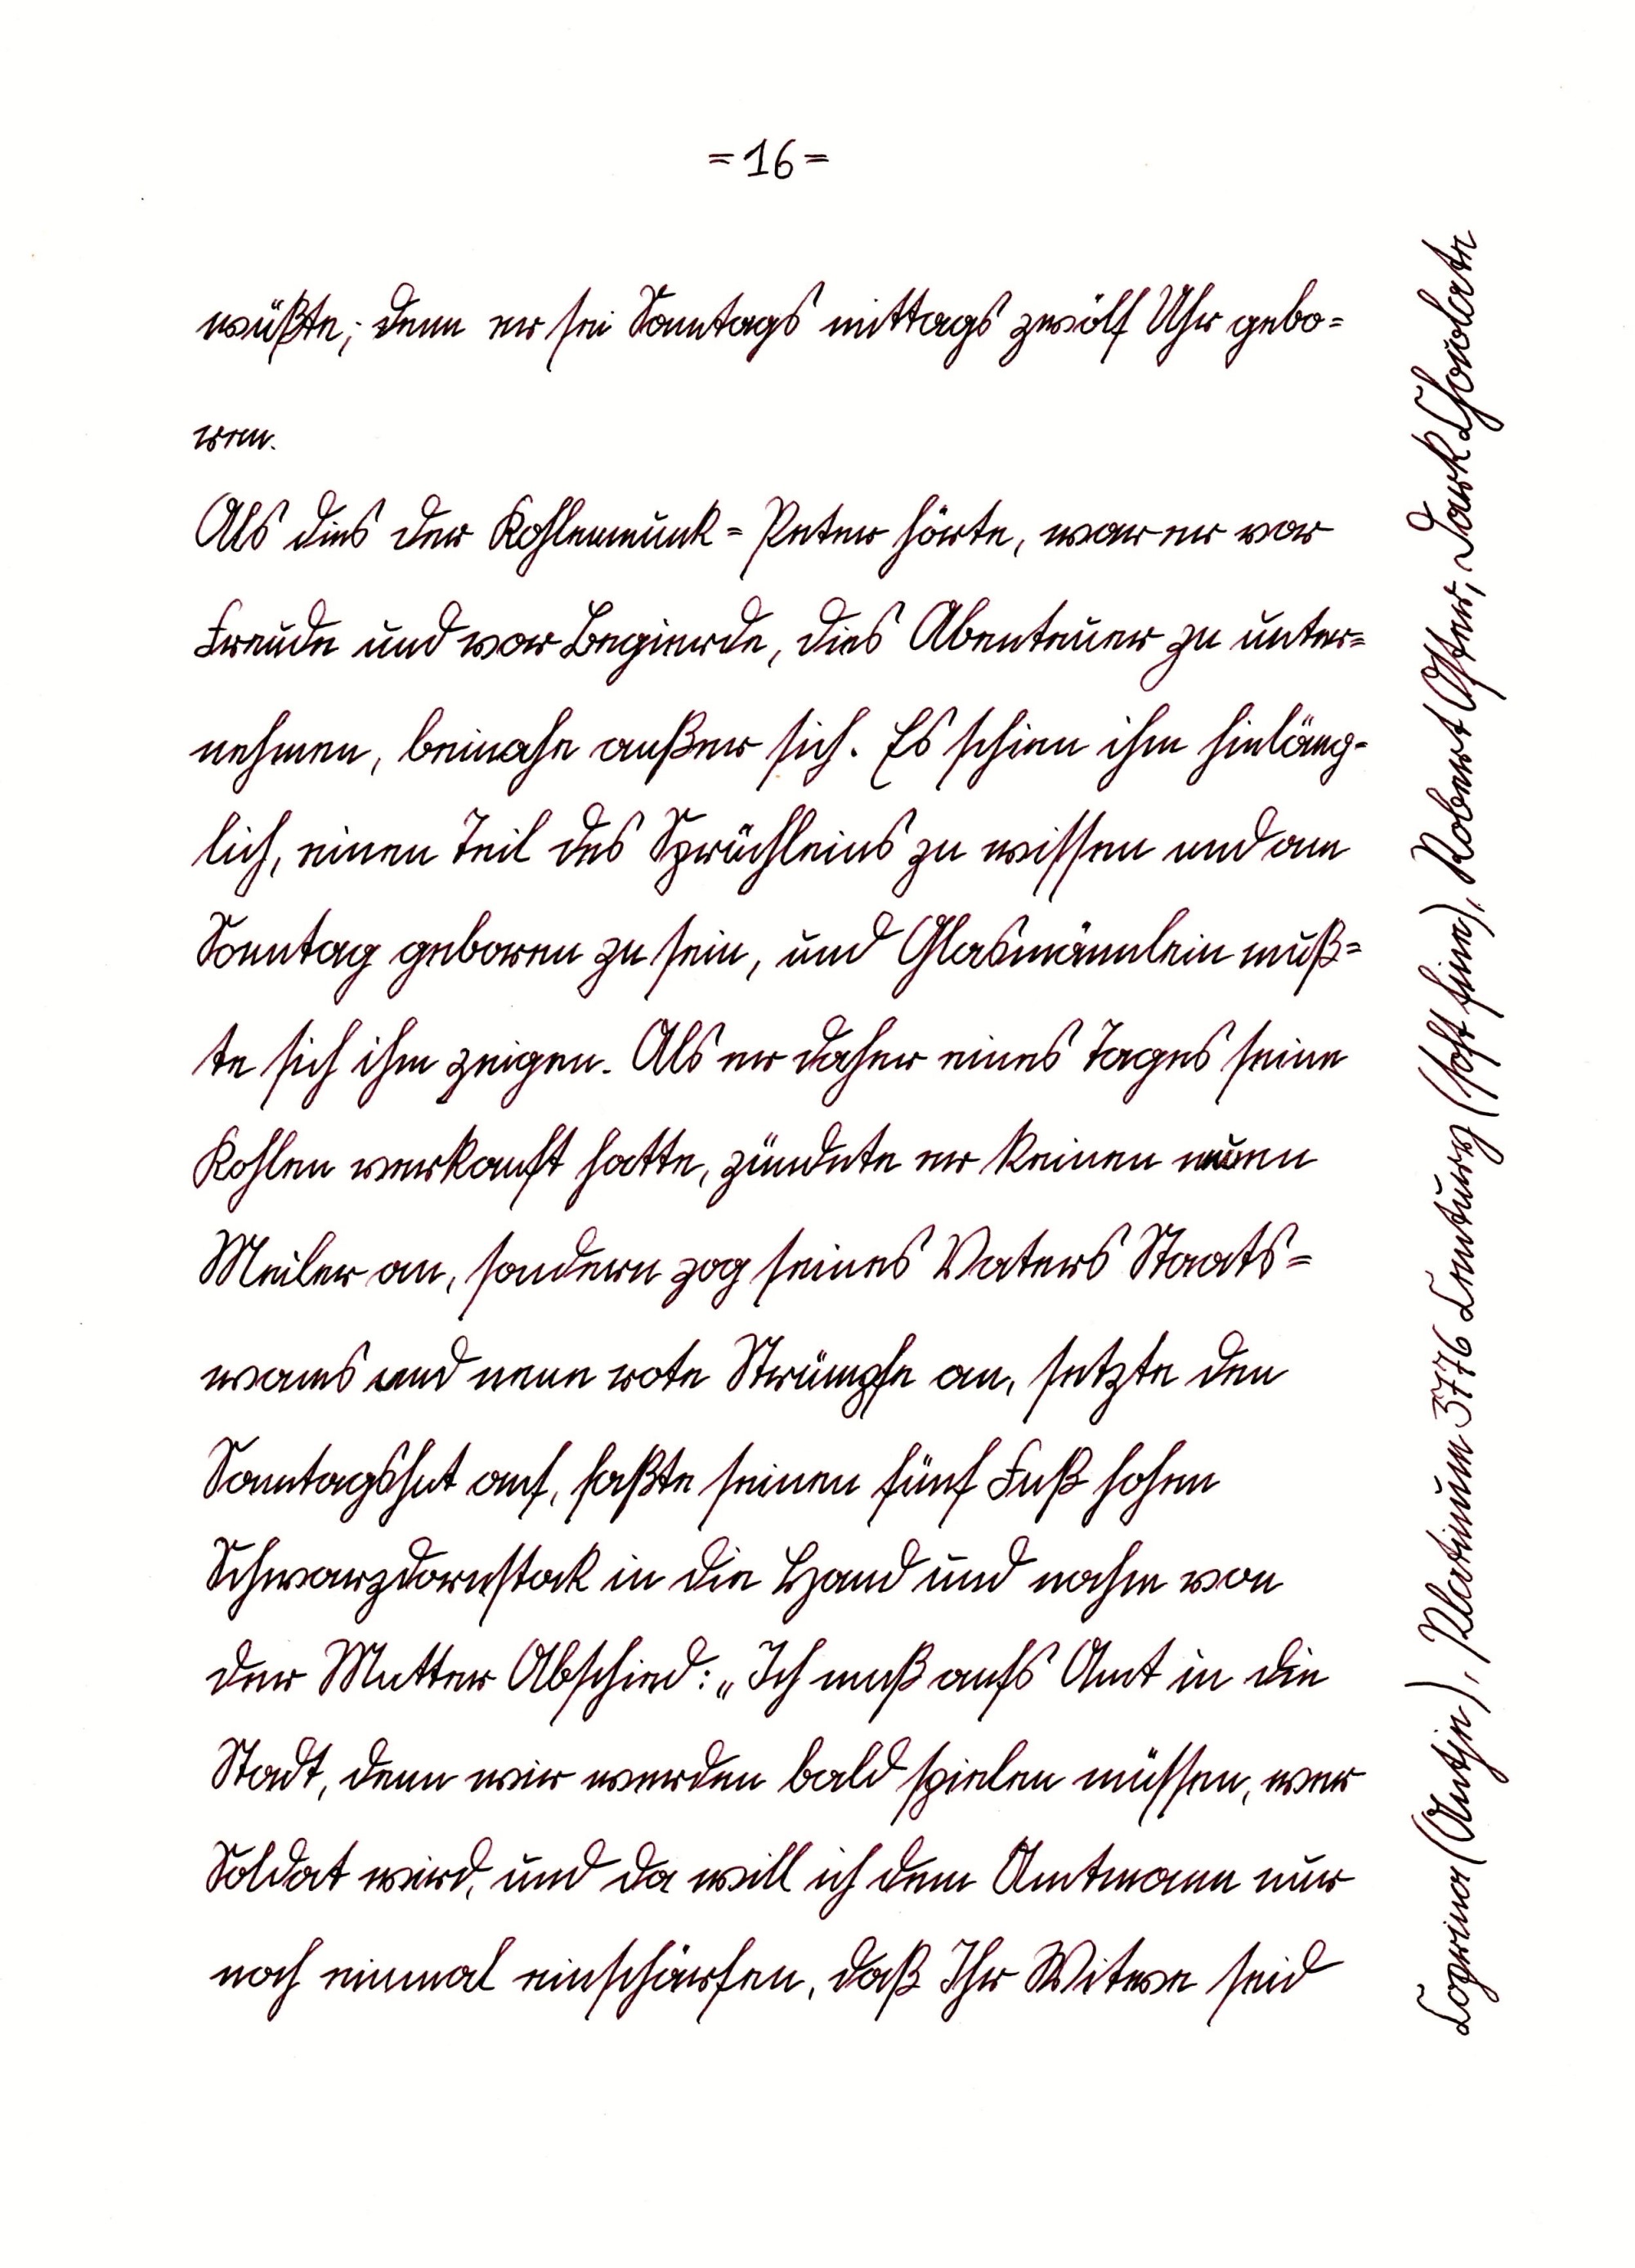 =16=
wüßte; denn er sei Sonntags mittags zwölf Uhr gebo=
ren.
Als dies der Kohlenmunk=Peter hörte, war er vor
Freude und vor Begierde, dies Abenteuer zu unter=
nehmen, beinahe außer sich. Es schien ihm hinläng-
lich, einen Teil des Sprüchleins zu wissen und am
Sonntag geboren zu sein, und Glasmännlein muß=
te sich ihm zeigen. Als er daher eines Tages seine
Kohlen verkauft hatte, zündete er keinen neuen
Meiler an, sondern zog seines Vaters Staats=
wams und neue rote Strümpfe an, setzte den
Sonntagshut auf, faßte seinen fünf Fuß hohen
Schwarzdornstock in die Hand und nahm von
der Mutter Abschied: „Ich muß aufs Amt in die
Stadt, denn wir werden bald spielen müssen, wer
Soldat wird, und da will ich dem Amtmann nur
noch einmal einschärfen, daß Ihr Witwe seid
(Antje), Platinum 3776 Century (soft fine), Robert Oster, Dark Chocolate